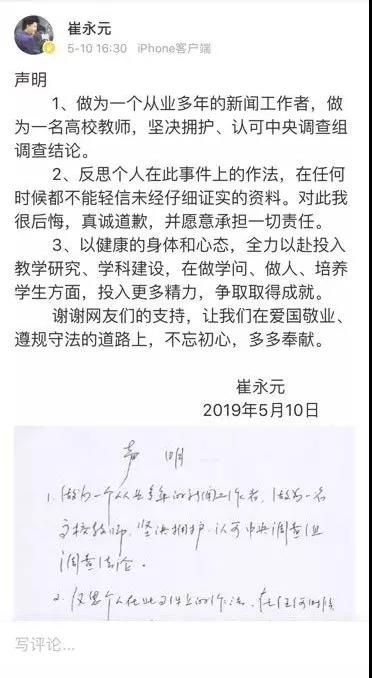 崔永元
5-10 16:30 iPhone客户端
声明
1、做为一个从业多年的新闻工作者，做
为一名高校教师，坚决拥护、认可中央调查组
调查结论。
2、反思个人在此事件上的作法，在任何
时候都不能轻信未经仔细证实的资料。对此我
很后悔，真诚道歉，并愿意承担一切责任。
3、以健康的身体和心态，全力以赴投入
教学研究、学科建设，在做学问、做人、培养
学生方面，投入更多精力，争取取得成就。
谢谢网友们的支持，让我们在爱国敬业、
遵规守法的道路上，不忘初心，多多奉献。
崔永元
2019年5月10日
声明
1.做为一个从业多年的新闻工作者，做为一名
高校教师，坚决拥护、认可中央调查组
调查结论。
2.反思个人在此事件上的作法，在任何时候
写评论...